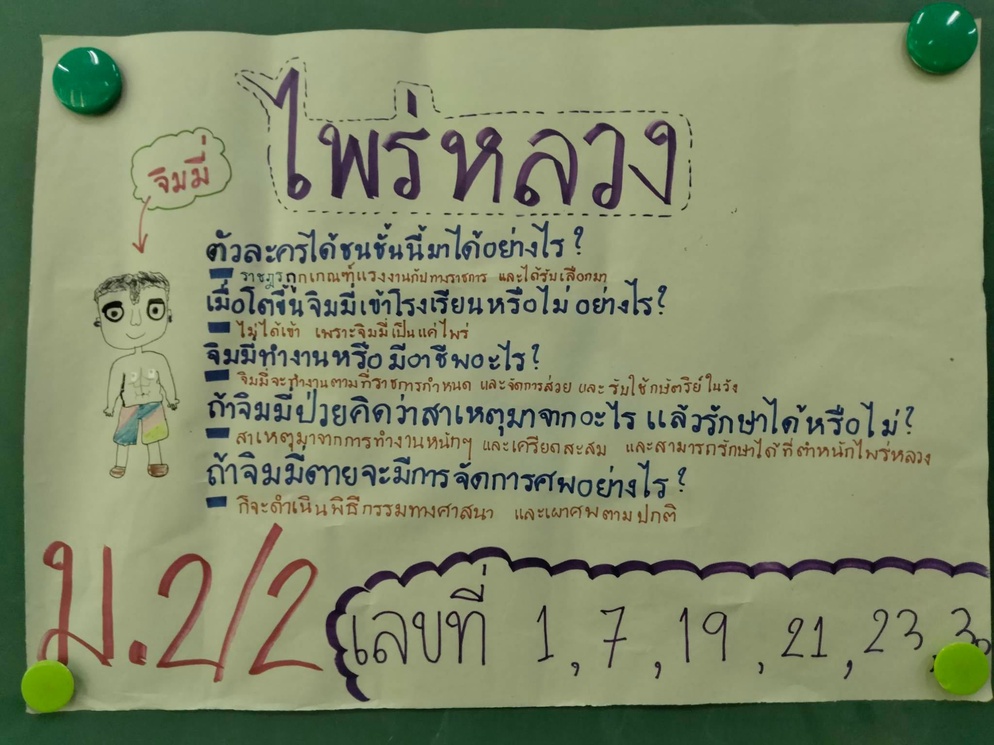 ไพร่หลวง
จิมมี่
ตัวละครได้ชนชั้นนี้มาได้อย่างไร?
ราชฎรถูกเกณฑ์แรงงานกับทางราชการ และได้รับเลือกมา
เมื่อโตขึ้นจิมมี่เข้าโรงเรียนหรือไม่ อย่างไร?
ไม่ได้เข้า เพราะจิมมี่เป็นแค่ไพร่
จิมมี่ทำงานหรือ มีอาชีพอะไร?
จิมมี่จะทำงานตามที่ราชการกำหนด และจัดการส่วย และ รับใช้กษัตริย์ในวัง
ถ้าจิมมี่ป่วยคิดว่าสาเหตุมาจากอะไร แล้วรักษาได้หรือไม่?
สาเหตุมาจากการทำงานหนักๆ และเครียดสะสม และสามารถรักษาได้ที่ตำหนักไพร่หลวง
ถ้าจิมมี่ตายจะมีการจัดการศพอย่างไร?
ก็จะดำเนินพิธีกรรมทางศาสนา และเผาศพตามปกติ
ม.2/2
เลขที่ 1, 7, 19, 21, 23,